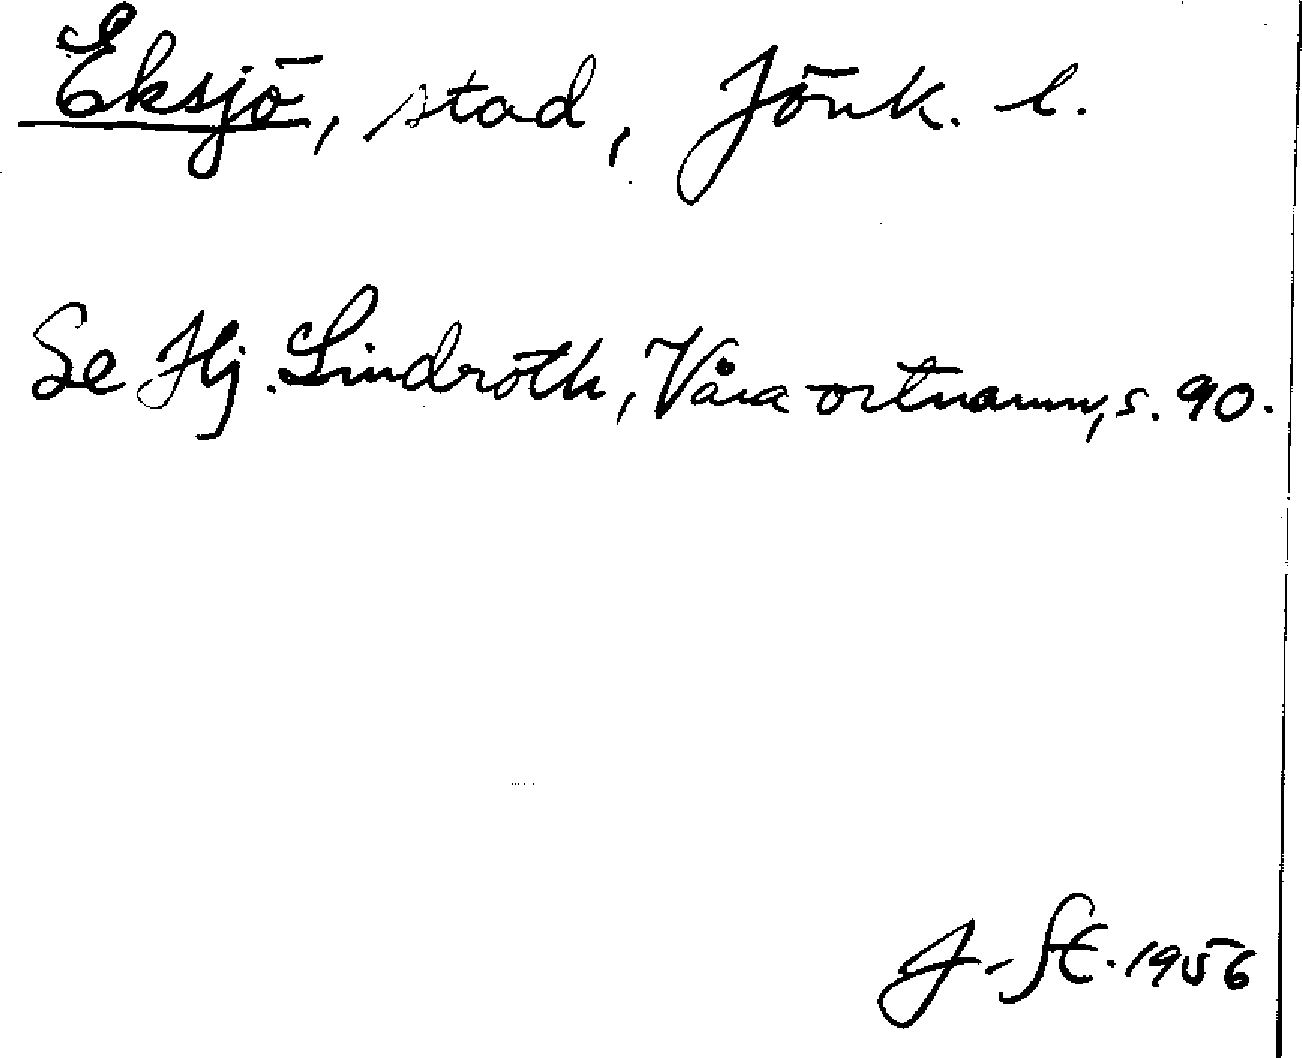 Eksjö, stad, Jönk. l.
Se Hj. Lindroth, Våra ortnamn, s. 90.
J. St. 1956